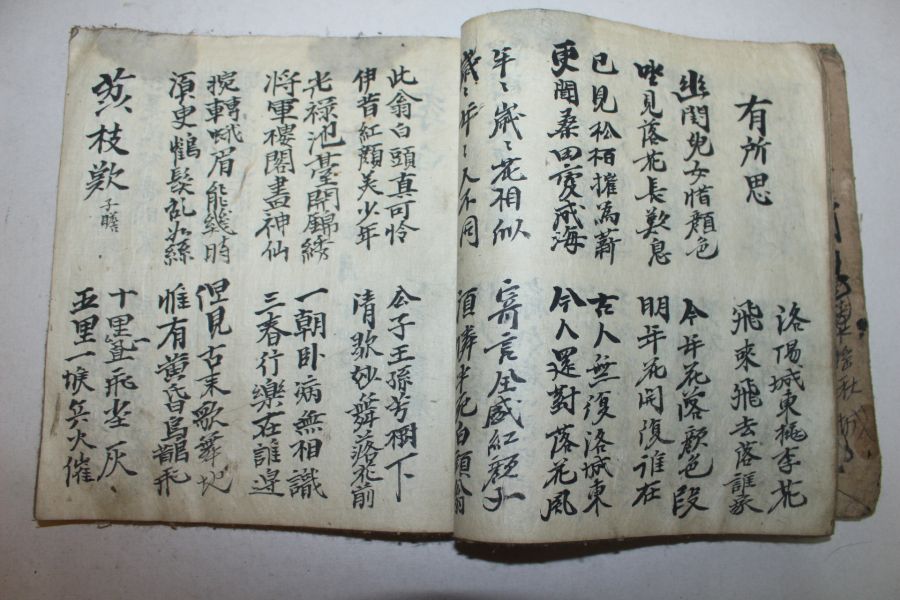 有所思
洛陽城東桃李花
飛來飛去落誰家
幽閨兒女惜顔色
坐見落花長歎息
今年花落顔色改
明年花開復誰在
已見松栢摧為薪
更聞桑田變成海
古人無復洛城東
今人還對落花風
年〻歲〻花相似
歲〻年〻人不同
寄言全盛紅顔子
須憐半死白頭翁
此翁白頭真可怜
伊昔紅顔美少年
公子王孫芳樹下
清歌妙舞落花前
光祿池臺開錦綉
將軍樓閣畫神仙
一朝卧病無相識
三春行樂在誰邊
捥轉蛾眉能幾時
湏更鶴髮乱如絲
但見古來歌舞地
惟有黃昏鳥鵲飛
荔枝歎 子瞻
十里一置飛尘灰
五里一堠兵火催